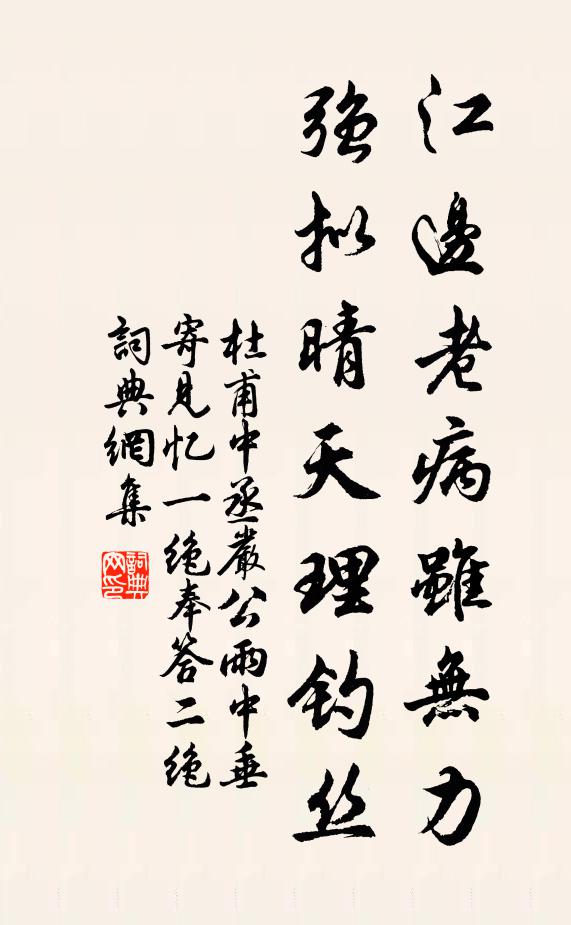 江邊老病雖無力
強拟晴天理钓丝
杜甫中丞嚴公雨中垂
寄見忆一绝奉答二绝
詞典網集
詞典网印